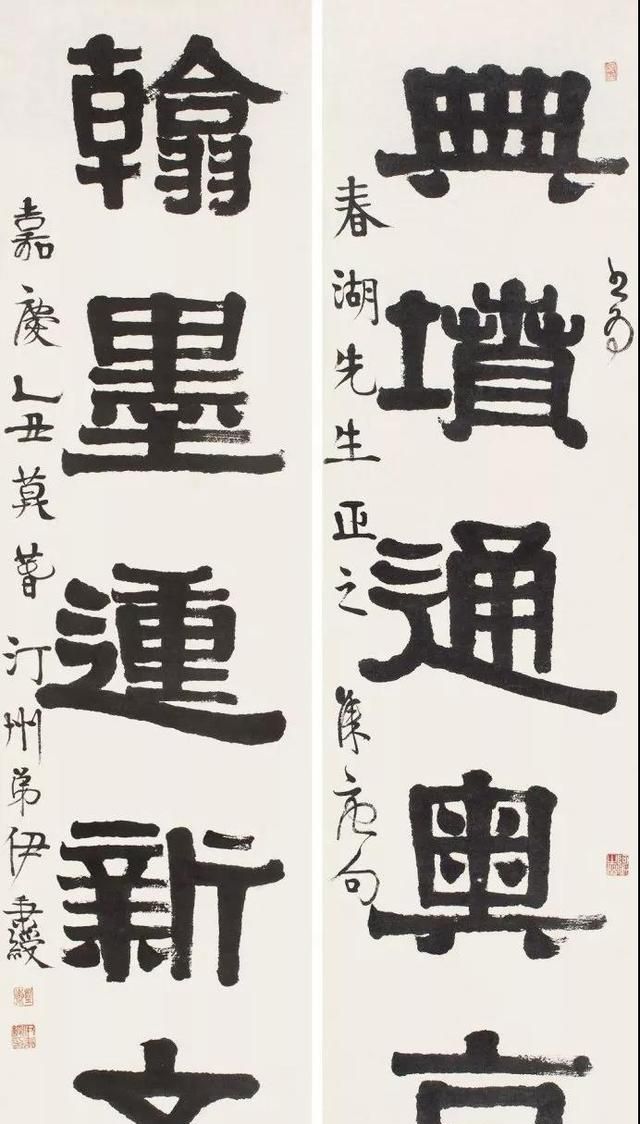 書為
典墳通奧
春湖先生正之 集唐句
翰墨䢔新文
嘉慶乙丑莫萅 汀州弟伊秉綬